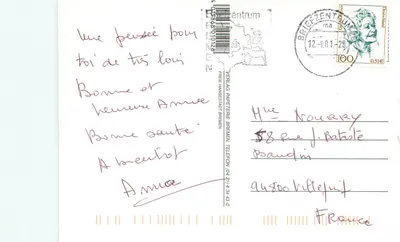 Une pensée pour
toi de très loin
Bonne et
heureuse Année
Bonne santé
A bientôt
Anna
zentrum
BRIEFZENTRUM
12.-1.01-20
100
VERLAG PAPETERIE BREMEN TELEFON
FREIE HANSESTADT BREMEN
Mme
58 Rue J. Batiste
Baudin
94800 Villejuif
France